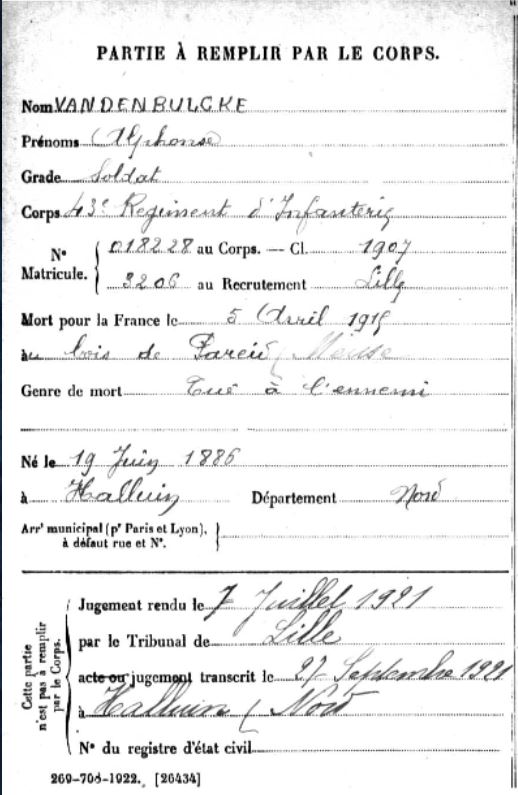 PARTIE À REMPLIR PAR LE CORPS.
Nom VANDENBULCKE
Prénoms Alphonse
Grade Soldat
Corps 43e Regiment d'Infanterie
N° Matricule. { 018228 au Corps. — Cl. 1907
3206 au Recrutement Lille
Mort pour la France le 5 Avril 1915
au bois de Pareid (Meuse
Genre de mort Tué à l'ennemi
Né le 19 Juin 1886
à Halluin Département Nord
Arrt municipal (pr Paris et Lyon),
à défaut rue et N°.
Cette partie n'est pas à remplir par le Corps.
Jugement rendu le 7 Juillet 1921
par le Tribunal de Lille
acte ou jugement transcrit le 27 Septembre 1921
à Halluin (Nord
N° du registre d'état civil
269-708-1922. [26434]